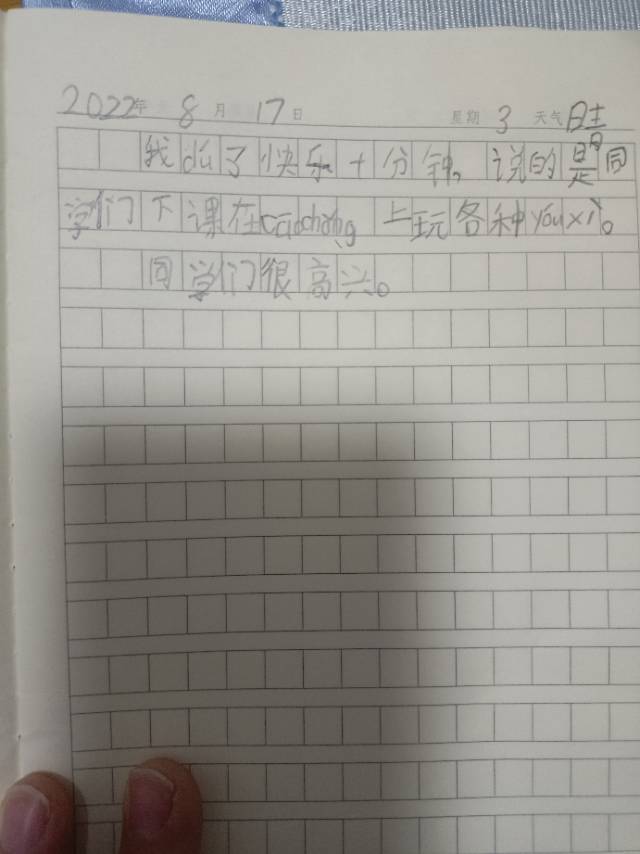 2022年 8月 17日 星期 3 天气
我dú了快乐十分钟。说的是同
学们下课在cāochǎng上玩各种yóuxì。
同学们很高兴。